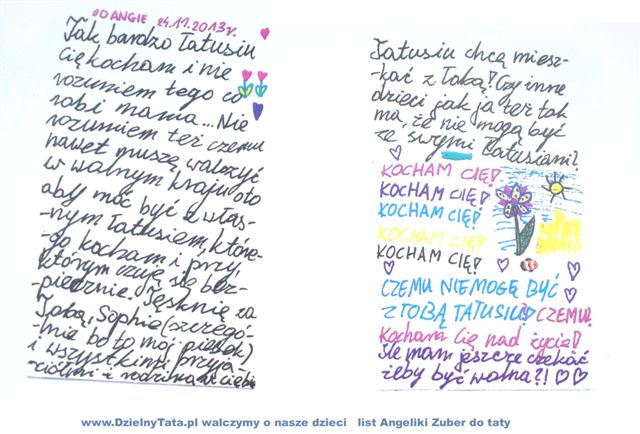 OD ANGIE 24.11.2013r.
Jak bardzo Tatusiu
Cię kocham i nie
rozumiem tego co
robi mama... Nie
rozumiem też czemu
nawet muszę walczyć
w wolnym kraju oto
aby móc być z włas-
-nym Tatusiem, które-
-go kocham i przy
którym czuję się bez-
-piecznie. Tęsknię za
Tobą, Sophie (szczegó-
-nie bo to mój piesek)
i wszystkimi przyja-
-ciółmi i rodziną od ciebie
Tatusiu chcę miesz-
-kać z Tobą! Czy inne
dzieci jak ja też tak
ma, że nie mogą być
ze swymi Tatusiami?
KOCHAM CIĘ!
KOCHAM CIĘ!
KOCHAM CIĘ!
KOCHAM CIĘ!
KOCHAM CIĘ!
CZEMU NIEMOGĘ BYĆ
Z TOBĄ TATUSIU!? CZEMU?
Kocham Cię nad życie!
Ile mam jeszcze czekać
żeby być wolna?!
www.DzielnyTata.pl walczymy o nasze dzieci list Angeliki Zuber do taty